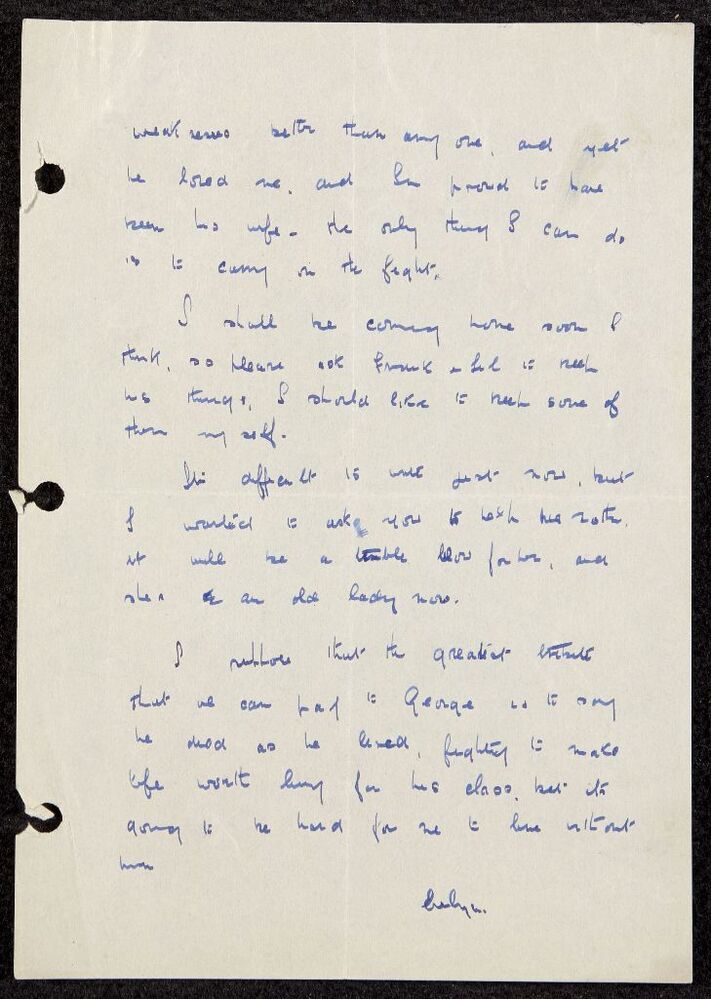 weaknesses better than any one, and yet
he loved me, and I'm proud to have
been his wife - the only thing I can do
is to carry on the fight.
I shall be coming home soon I
think, so please ask Frank & Lil to keep
his things, I should like to keep some of
them my self.
It's difficult to write just now, but
I wanted to ask you to help his mother,
it will be a terrible blow for her, and
she is an old lady now.
I suppose that the greatest tribute
that we can pay to George is to say
he died as he lived, fighting to make
life worth living for his class, but its
going to be hard for me to live without
him